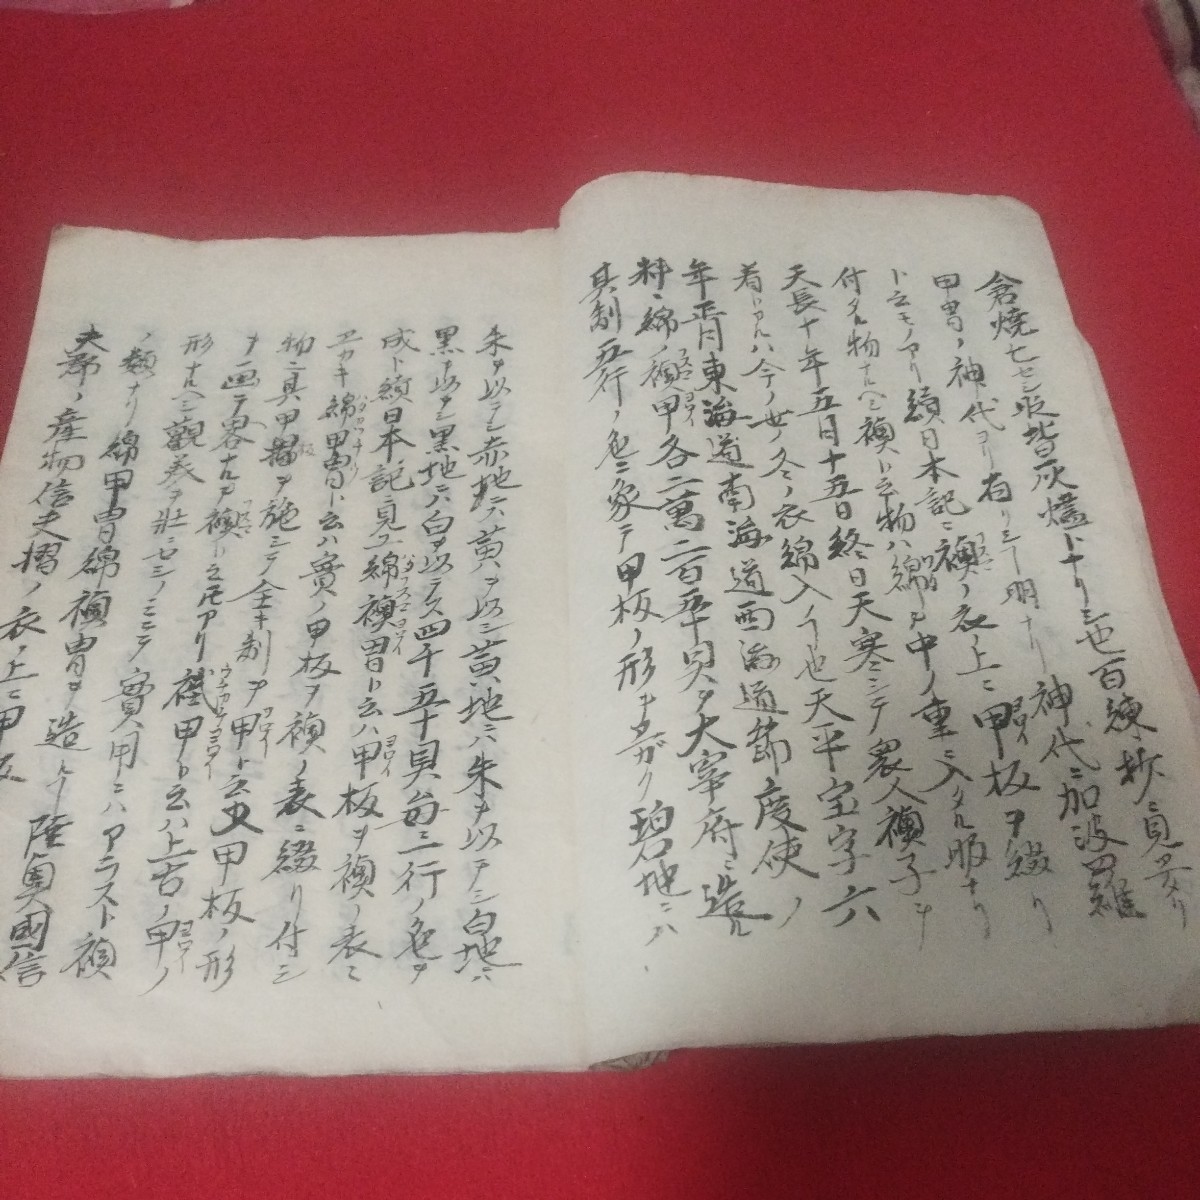 倉焼セセシ取皆灰燼トナリシ也百練抄ニ見エタリ
甲冑ノ神代ヨリ有リシヿ明ナリ神代ニ加波羅
ト云モノアリ續日本記ニ襖ノ衣ノ上ニ甲板ヲ綴リ
付タル物ナルヘシ襖ト云物ハ綿ヲ中ノ重ニ入タル服ナリ
天長十年五月十五日終日天寒シテ衆人襖子ヲ
着トアルハ今ノ世ノ冬ノ衣綿入ノヿ也天平宝字六
年正月東海道南海道西海道節度使ノ
料ニ綿ノ襖甲各二萬二百五十貝ヲ大宰府ニ造ル
其制五行ノ色ニ象テ甲板ノ形ヲヱガク碧地ニハ
朱ヲ以テシ赤地ニハ黄ヲ以シ黄地ニハ朱ヲ以テシ白地ニハ
黒ヲ以テシ黒地ニハ白ヲ以テス四千五十貝毎ニ一行ノ色ヲ
成ト續日本記ニ見ユ綿襖冑ト云ハ甲板ヲ襖ノ表ニ
ヱカキ綿甲冑ト云ハ實ノ甲板ヲ襖ノ表ニ綴リ付シ
物ニ其甲板ヲ施シテ全キ制ヲ甲ト云又甲板ノ形
ヲ画テ畧ナルヲ襖ト云モアリ袿甲ト云ハ上古ノ甲ノ
形ナルヘシ觀美ヲ壯ニセシノミニテ實用ニハアラスト襖
ノ類ナリ綿甲冑綿襖冑ヲ造ルヿ陸奥國信
夫郡ノ産物信夫摺ノ衣ノ上ニ甲板